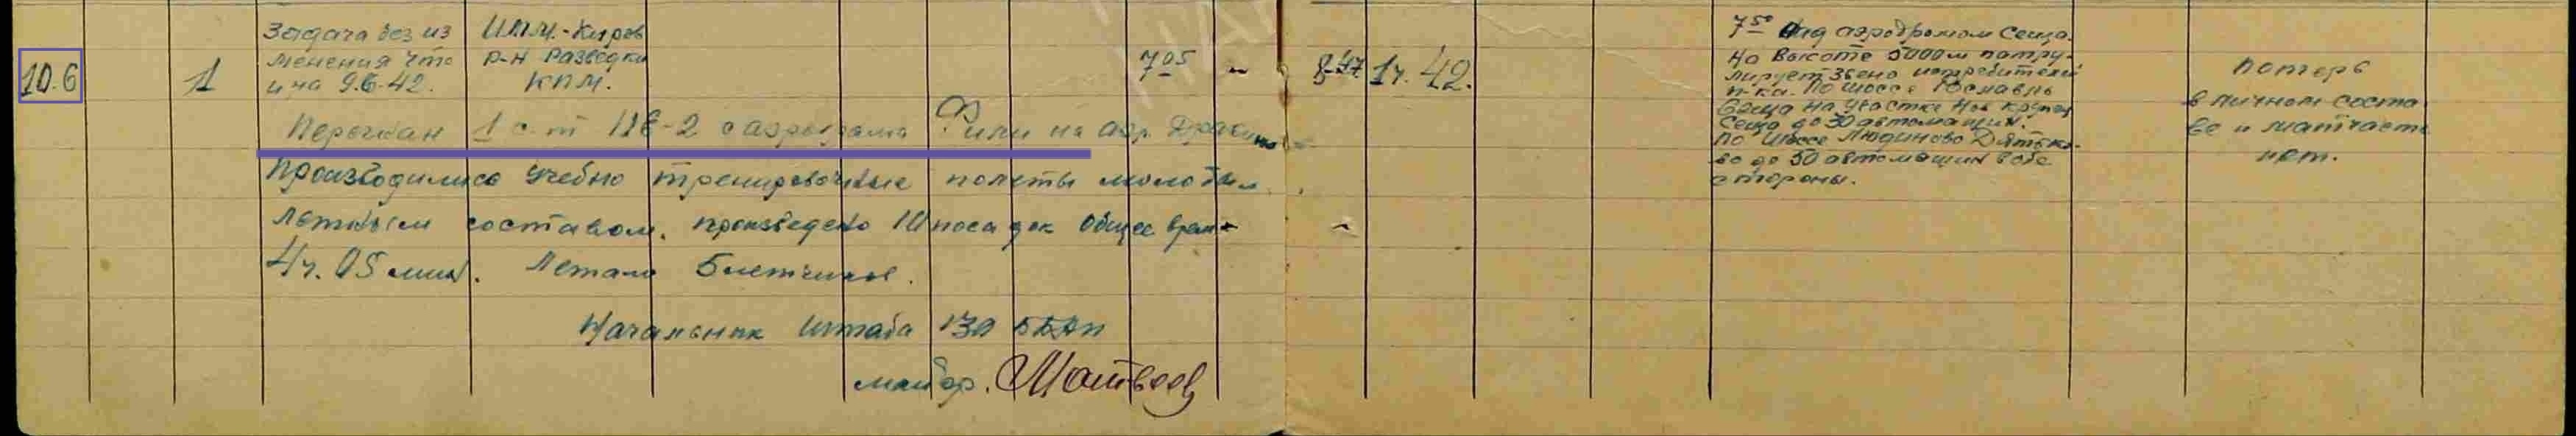 10.6
1
Задача без из
менения что
и на 9.6.42.
ИПМ.-Киров
р-н разведки
КПМ.
7 05
-
8-47
1ч. 42.
7 50 Над аэродромом Сеща
на высоте 5000м патру-
лирует звено истребителей
п-ка. По шоссе Рославль
Сеща на участке Нов крупец
Сеща до 30 автомашин.
По шоссе Людиново Дятько-
во до 50 автомашин в обе
стороны.
потерь
в личном соста
ве и матчасти
нет.
Перегнан 1 с-т ПЕ-2 с аэродрома Фили на аэр. Дракино
Производились учебно тренировочные полеты молодым
летным составом. произведено 10 посадок общее время
4ч. 05 мин. Летало 5 летчиков.
Начальник штаба 130 ББАП
майор. Матвеев